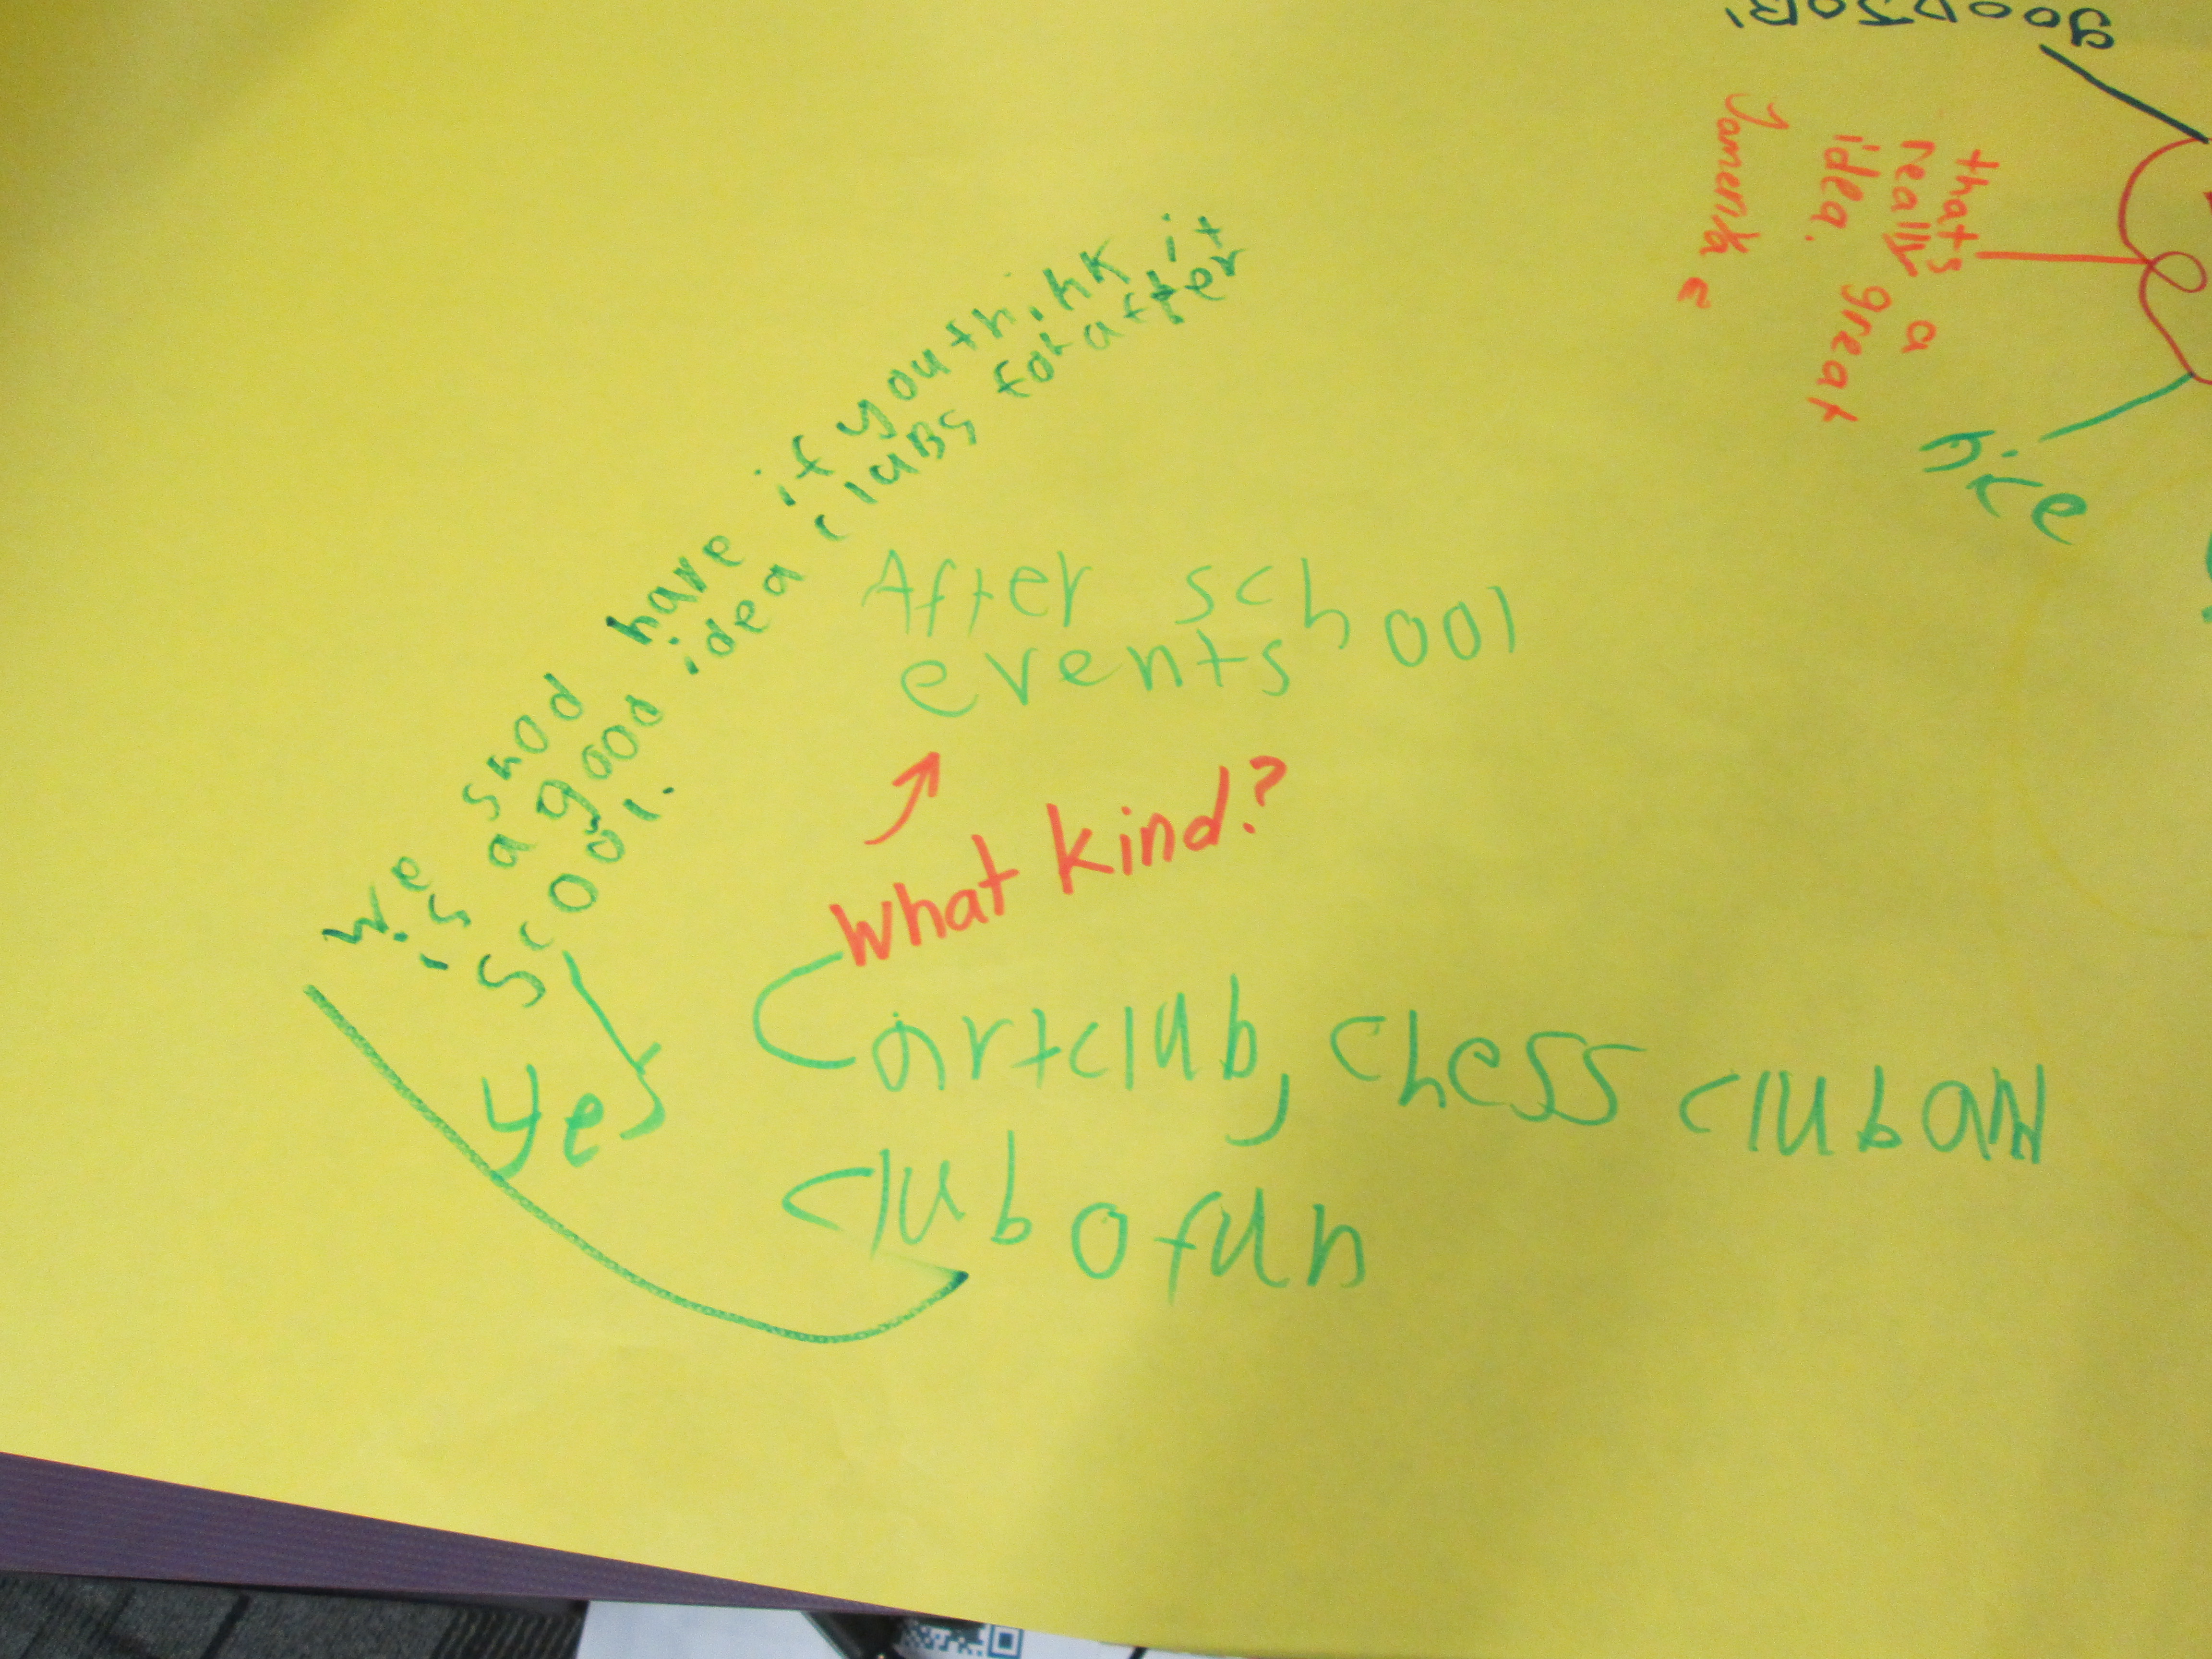 we shod have if you think it
is a good idea cluBs for after
scool.
yes
After school
events
What kind?
artclub, chess club and
club ofun
gooD JOB!
that's
really a
idea. great
nice